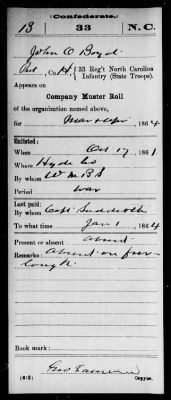 (Confederate.)
B 33 N.C.
John C Boyd
Pvt, Co. H, 33 Reg't North Carolina
Infantry (State Troops).
Appears on
Company Muster Roll
of the organization named above,
for Mar & Apr, 1864
Enlisted:
When Oct 17, 1861
Where Hyde Co
By whom W M B S
Period war
Last paid:
By whom Capt
To what time Jan 1, 1864
Present or absent Absent
Remarks: Absent on fur-
lough.
Book mark:
Geo
(642) Copyist.